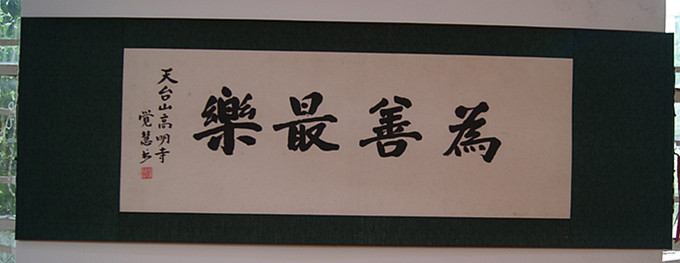 為善最樂
天台山高明寺
覺慧